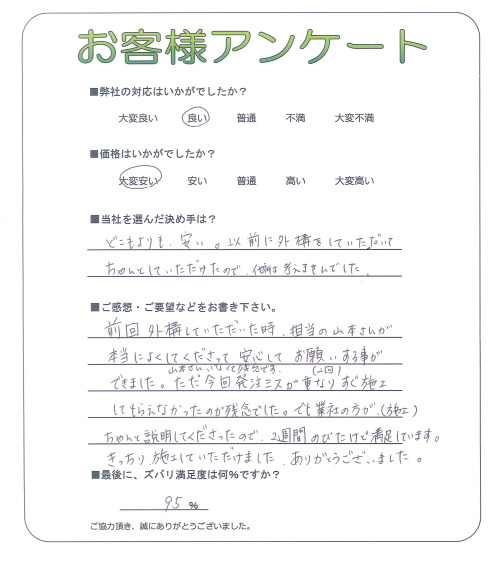 お客様アンケート
■弊社の対応はいかがでしたか？
大変良い 良い 普通 不満 大変不満
■価格はいかがでしたか？
大変安い 安い 普通 高い 大変高い
■当社を選んだ決め手は？
どこもよりも、安い。以前に外構をしていただいて
ちゃんとしていただけたので、他は考えませんでした。
■ご感想・ご要望などをお書き下さい。
前回外構していただいた時、担当の山本さんが
本当によくしてくださって安心してお願いする事が
山本さんいなくて残念です。 (2回)
できました。ただ今回発注ミスが重なりすぐ施工
してもらえなかったのが残念でした。でも業社の方が、(施工)
ちゃんと説明してくださったので、2週間のびたけど満足しています。
きっちり施工していただけました。ありがとうございました。
■最後に、ズバリ満足度は何％ですか？
95 ％
ご協力頂き、誠にありがとうございました。